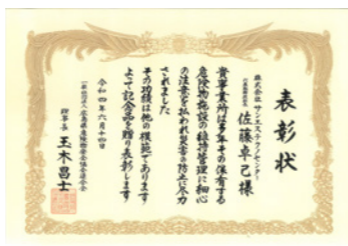 表彰状
株式会社サンエステクノセンター
佐藤卓己様
貴事業所は多年その保有する
危険物施設の維持管理に細心
の注意を払われ災害の防止に尽力
されました
その功績は他の模範であります
よって記念品を贈り表彰します
令和四年六月十四日
理事長 玉木昌士